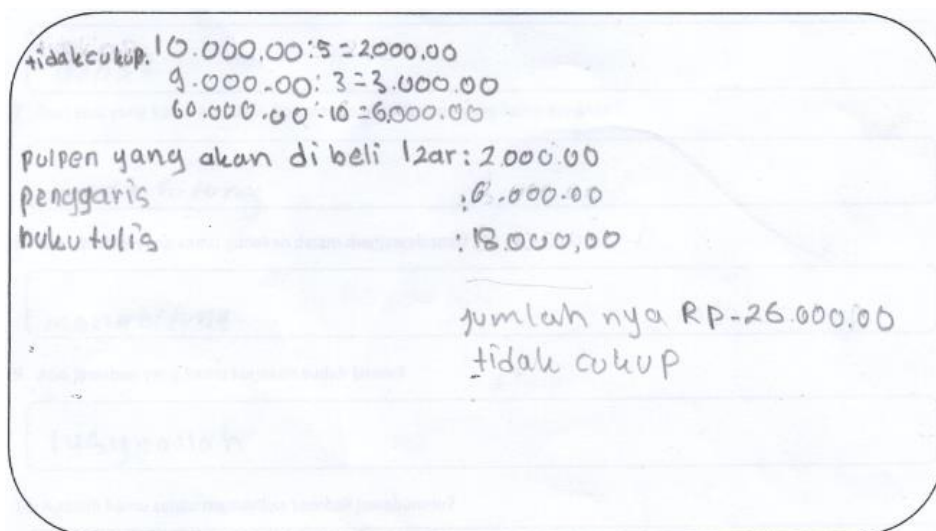 tidak cukup. 10.000.00:5=2000.00
9.000.00:3=3.000.00
60.000.00:10=6000.00
pulpen yang akan di beli Izar:2.000.00
penggaris :6.000.00
buku tulis :18.000,00
jumlah nya RP-26.000.00
tidak cukup